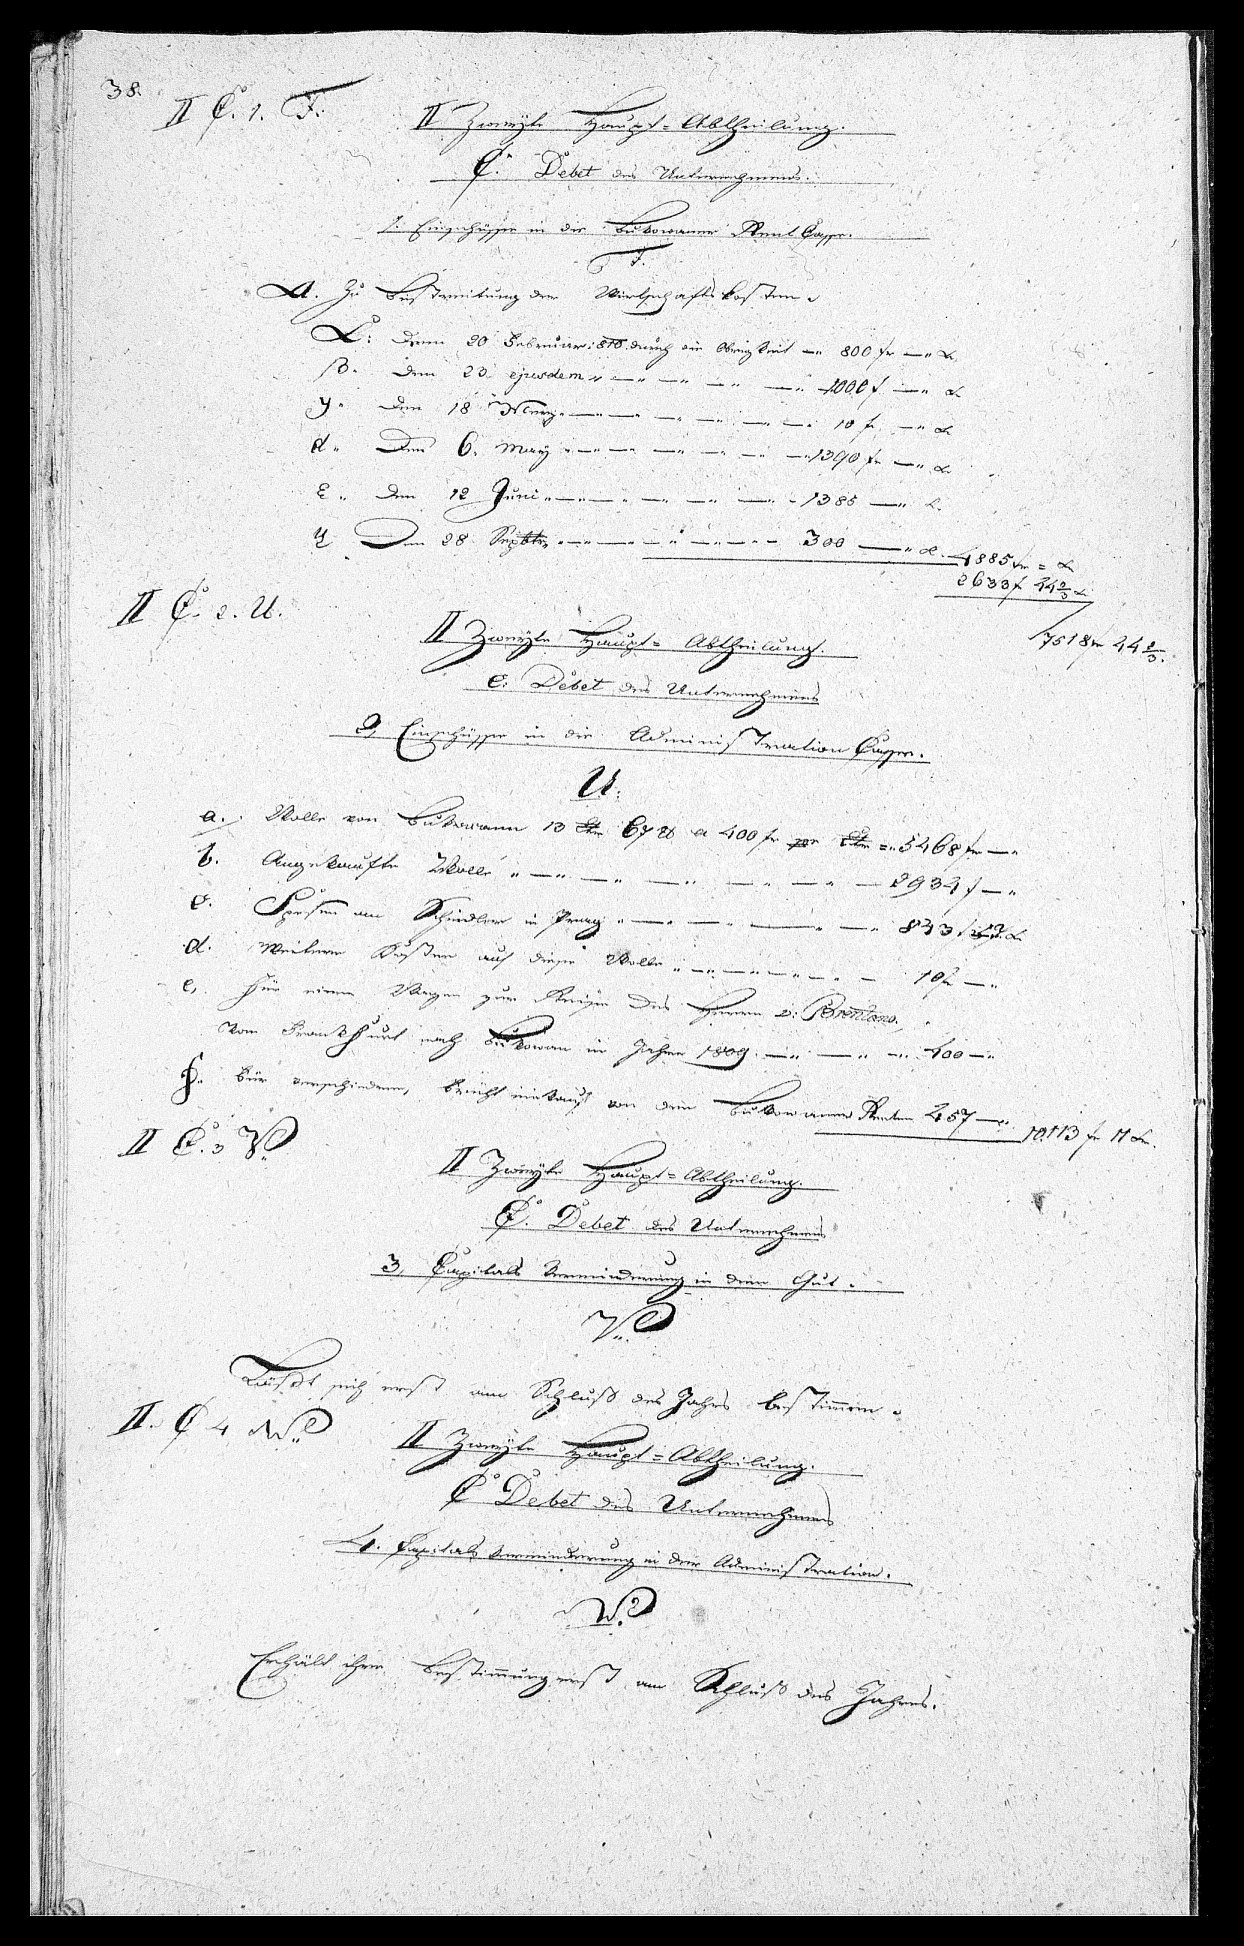 38.
II C. 1. T.
II Zweyte Haupt=Abtheilung.
C. Debet des Unternehmens.
1. Einschüsse in die Bukowaner Rent Casse.
T.
A. Zu Bestreitung der Wirtschaftskosten.
α: Denn 20 Februar: 810. durch die Obrigkeit — 800 fr — x
β. den 23. ejusdem — — — — 1000 f — x
γ. den 18 Merz — — — — 10 fr — x
δ. Den 6. May — — — — 1390 fr — x
ε. den 12 Juni — — — — 1385 — x
ζ Den 28 Septbr — — — — 300 — x. 4885 fr = x
2633 f 44 2/3 x
7518 fr 44 2/3.
II C. 2. U.
II Zweyte Haupt=Abtheilung.
C. Debet des Unternehmens
2, Einschüsse in die Administration Casse.
U.
a. Wolle von Bukowann 13 Ctr 67 ℔ a 400 fr per Ctr = 5468 fr —
b. Angekaufte Wolle — — — — 2934 f —
c. Spesen an Schindler in Prag — — — — 833 f x
d. Weitere Kosten auf diese Wolle — — — 10 fr —
e, Für einen Wagen zur Reise des Herrn v: Brentano,
von Frankfurt nach Bukowan im Jahre 1809. — — 400 —
f. Für verschiedene, von den Bukowaner Renten 457 — 10,113 fr 11 x.
II C. 3 V.
II Zweyte Haupt=Abtheilung.
C. Debet des Unternehmens
3, Capitals Verminderung in dem Gut.
V.
Läßt sich erst am Schluß des Jahrs bestimmen.
II. C 4 W.
II Zweyte Haupt=Abtheilung.
C Debet des Unternehmens
4. Capitals Verminderung in der Administration.
W.
Erhält ihre Bestimmung erst am Schluß des Jahres.